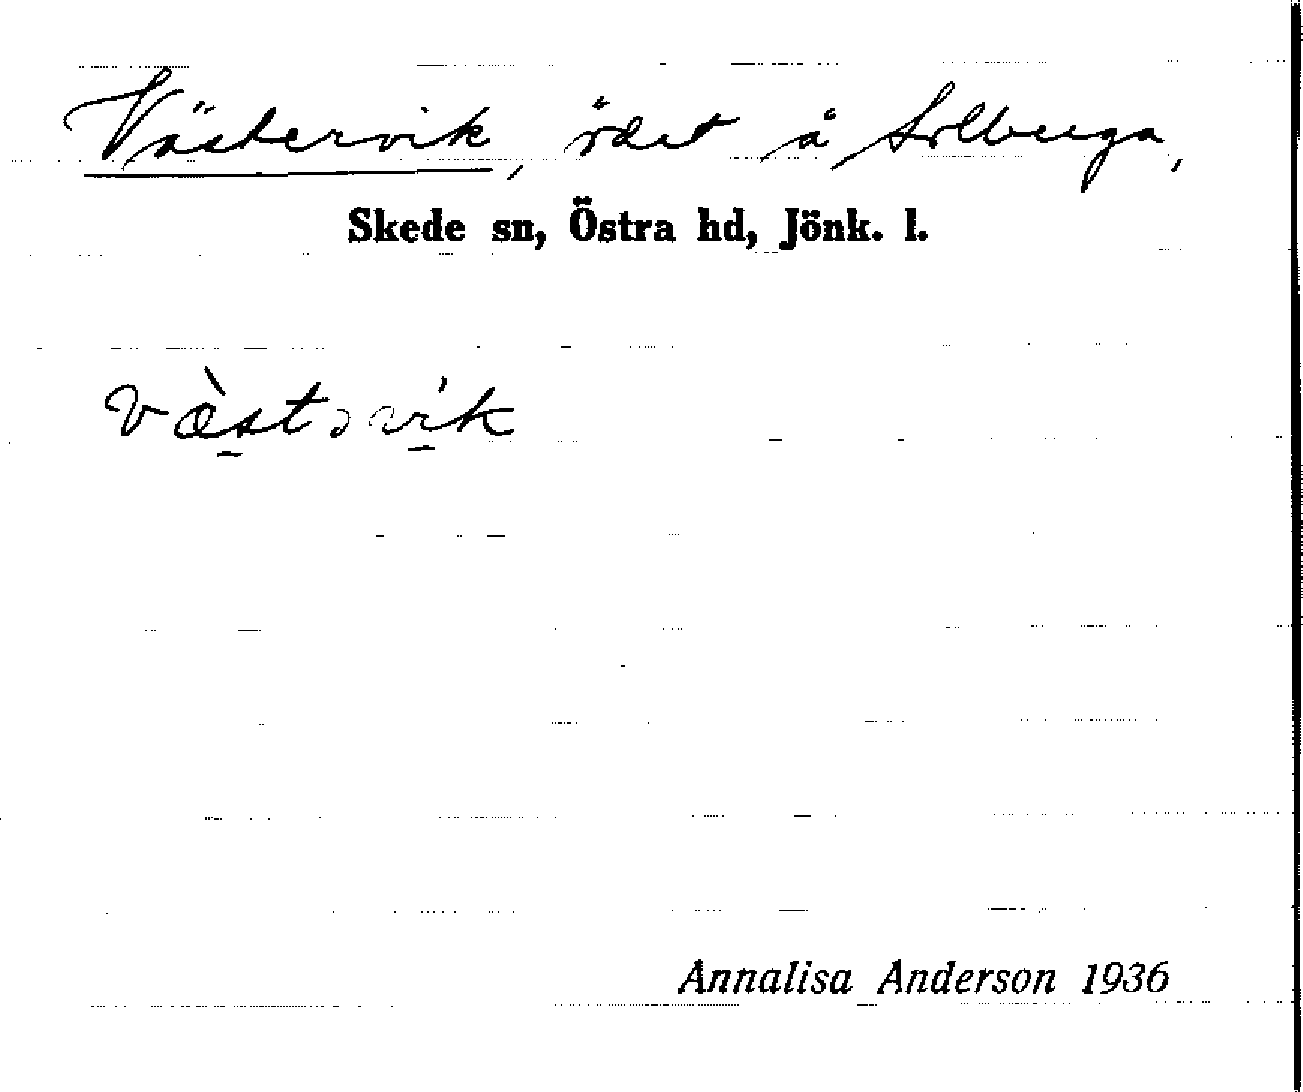 Västervik, å Solberga,
Skede sn, Östra hd, Jönk. l.
Annalisa Anderson 1936